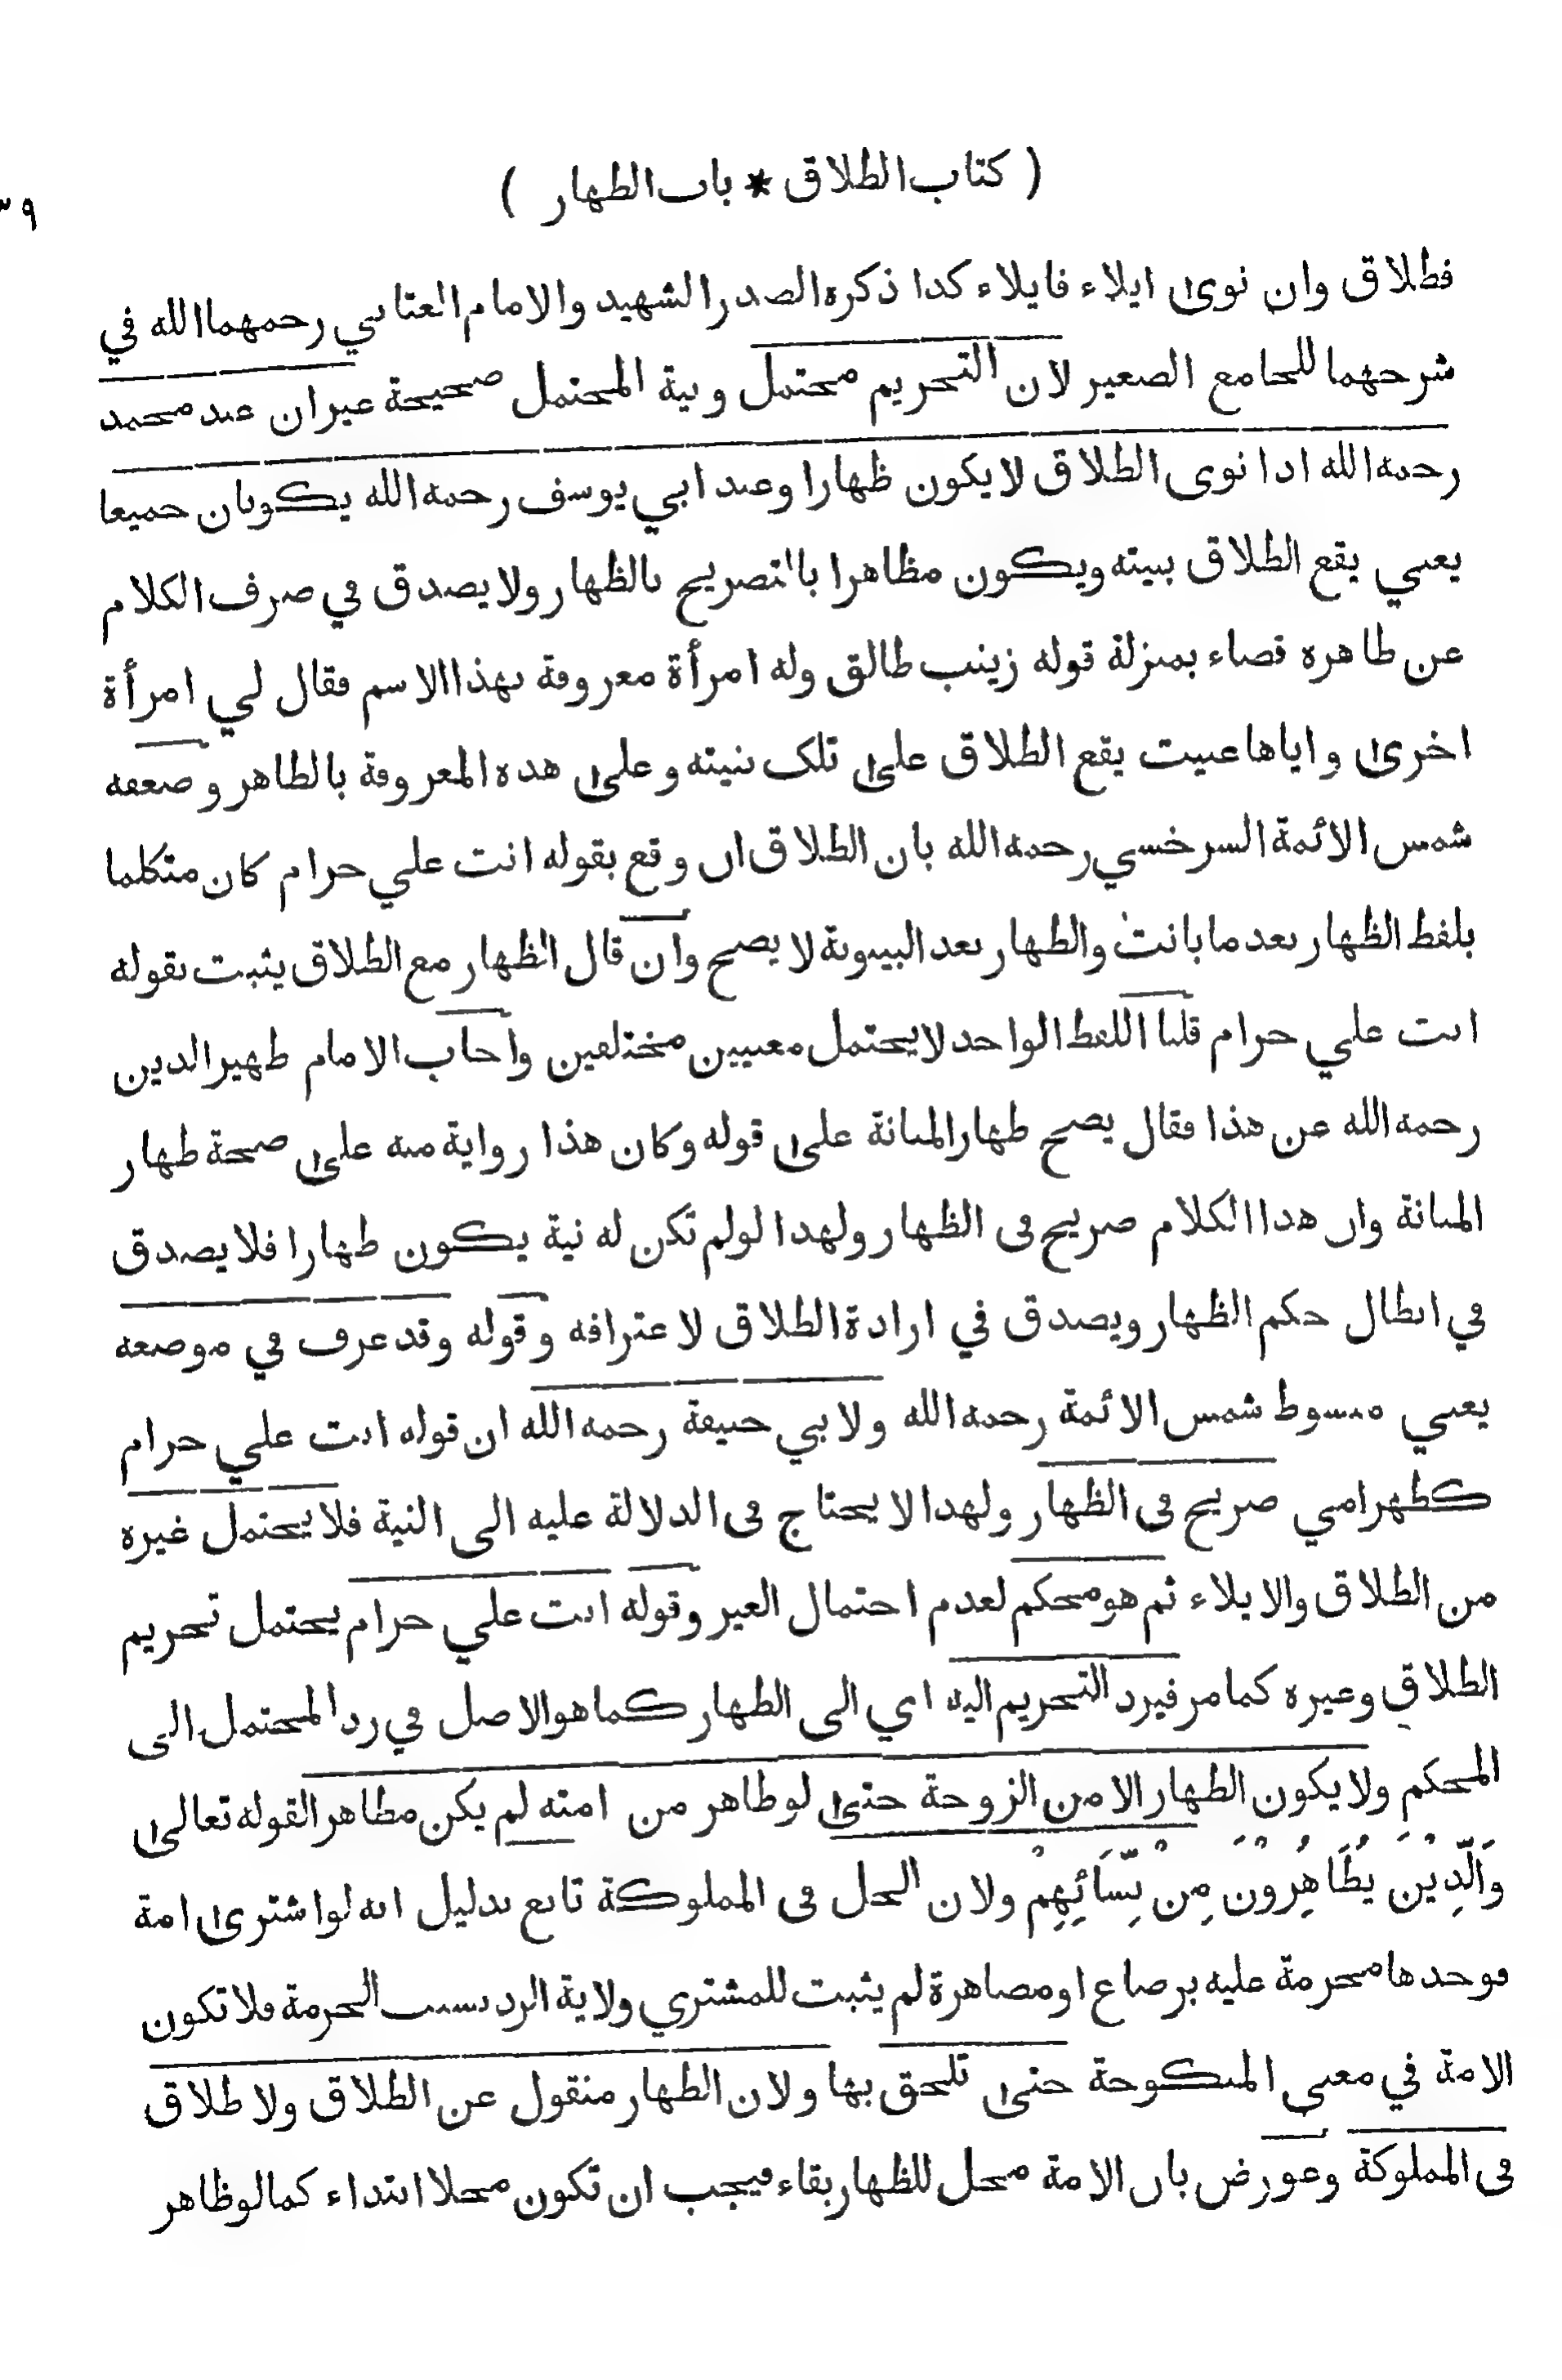 ( كتاب الطلاق * باب الظهار )
٣٩
فطلاق وان نوى ايلاء فايلاء كذا ذكره الصدر الشهيد والامام العتابي رحمهما الله في
شرحهما للجامع الصغير لان التحريم محتمل ونية المحتمل صحيحة غير ان عند محمد
رحمه الله اذا نوى الطلاق لا يكون ظهارا وعند ابي يوسف رحمه الله يكونان جميعا
يعني يقع الطلاق بنيته ويكون مظاهرا بالتصريح بالظهار ولا يصدق في صرف الكلام
عن ظاهره قضاء بمنزلة قوله زينب طالق وله امرأة معروفة بهذا الاسم فقال لي امرأة
اخرى واياها عنيت يقع الطلاق على تلك بنيته وعلى هذه المعروفة بالظاهر وضعفه
شمس الائمة السرخسي رحمه الله بان الطلاق ان وقع بقوله انت علي حرام كان متكلما
بلفظ الظهار بعد ما بانت والظهار بعد البينونة لا يصح وان قال الظهار مع الطلاق يثبت بقوله
انت علي حرام قلنا اللفظ الواحد لا يحتمل معنيين مختلفين واجاب الامام ظهير الدين
رحمه الله عن هذا فقال يصح ظهار المبانة على قوله وكان هذا رواية منه على صحة ظهار
المبانة وان هذا الكلام صريح في الظهار ولهذا لو لم تكن له نية يكون ظهارا فلا يصدق
في ابطال حكم الظهار ويصدق في ارادة الطلاق لاعترافه وقوله وقد عرف في موضعه
يعني مبسوط شمس الائمة رحمه الله ولابي حنيفة رحمه الله ان قوله انت علي حرام
كظهر امي صريح في الظهار ولهذا لا يحتاج في الدلالة عليه الى النية فلا يحتمل غيره
من الطلاق والايلاء ثم هو محكم لعدم احتمال الغير وقوله انت علي حرام يحتمل تحريم
الطلاق وغيره كما مر فيرد التحريم اليه اي الى الظهار كما هو الاصل في رد المحتمل الى
المحكم ولا يكون الظهار الا من الزوجة حتى لو ظاهر من امته لم يكن مظاهرا لقوله تعالى
وَالَّذِيْنَ يُظَاهِرُوْنَ مِنْ نِّسَائِهِمْ ولان الحل في المملوكة تابع بدليل انه لو اشترى امة
فوجدها محرمة عليه برضاع او مصاهرة لم يثبت للمشتري ولاية الرد بسبب الحرمة فلا تكون
الامة في معنى المنكوحة حتى تلحق بها ولان الظهار منقول عن الطلاق ولا طلاق
في المملوكة وعورض بان الامة محل للظهار بقاء فيجب ان تكون محلا ابتداء كما لو ظاهر